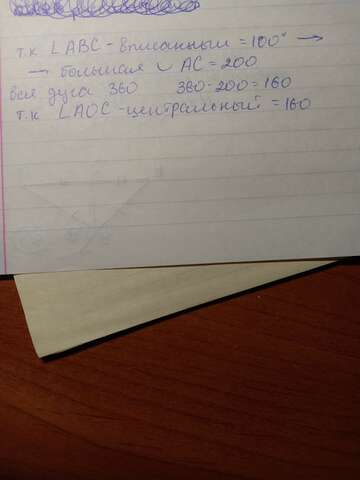 т.к ∠ABC - вписанный = 100° →
→ большая ◡ AC = 200
вся дуга 360 360-200=160
т.к ∠AOC - центральный = 160